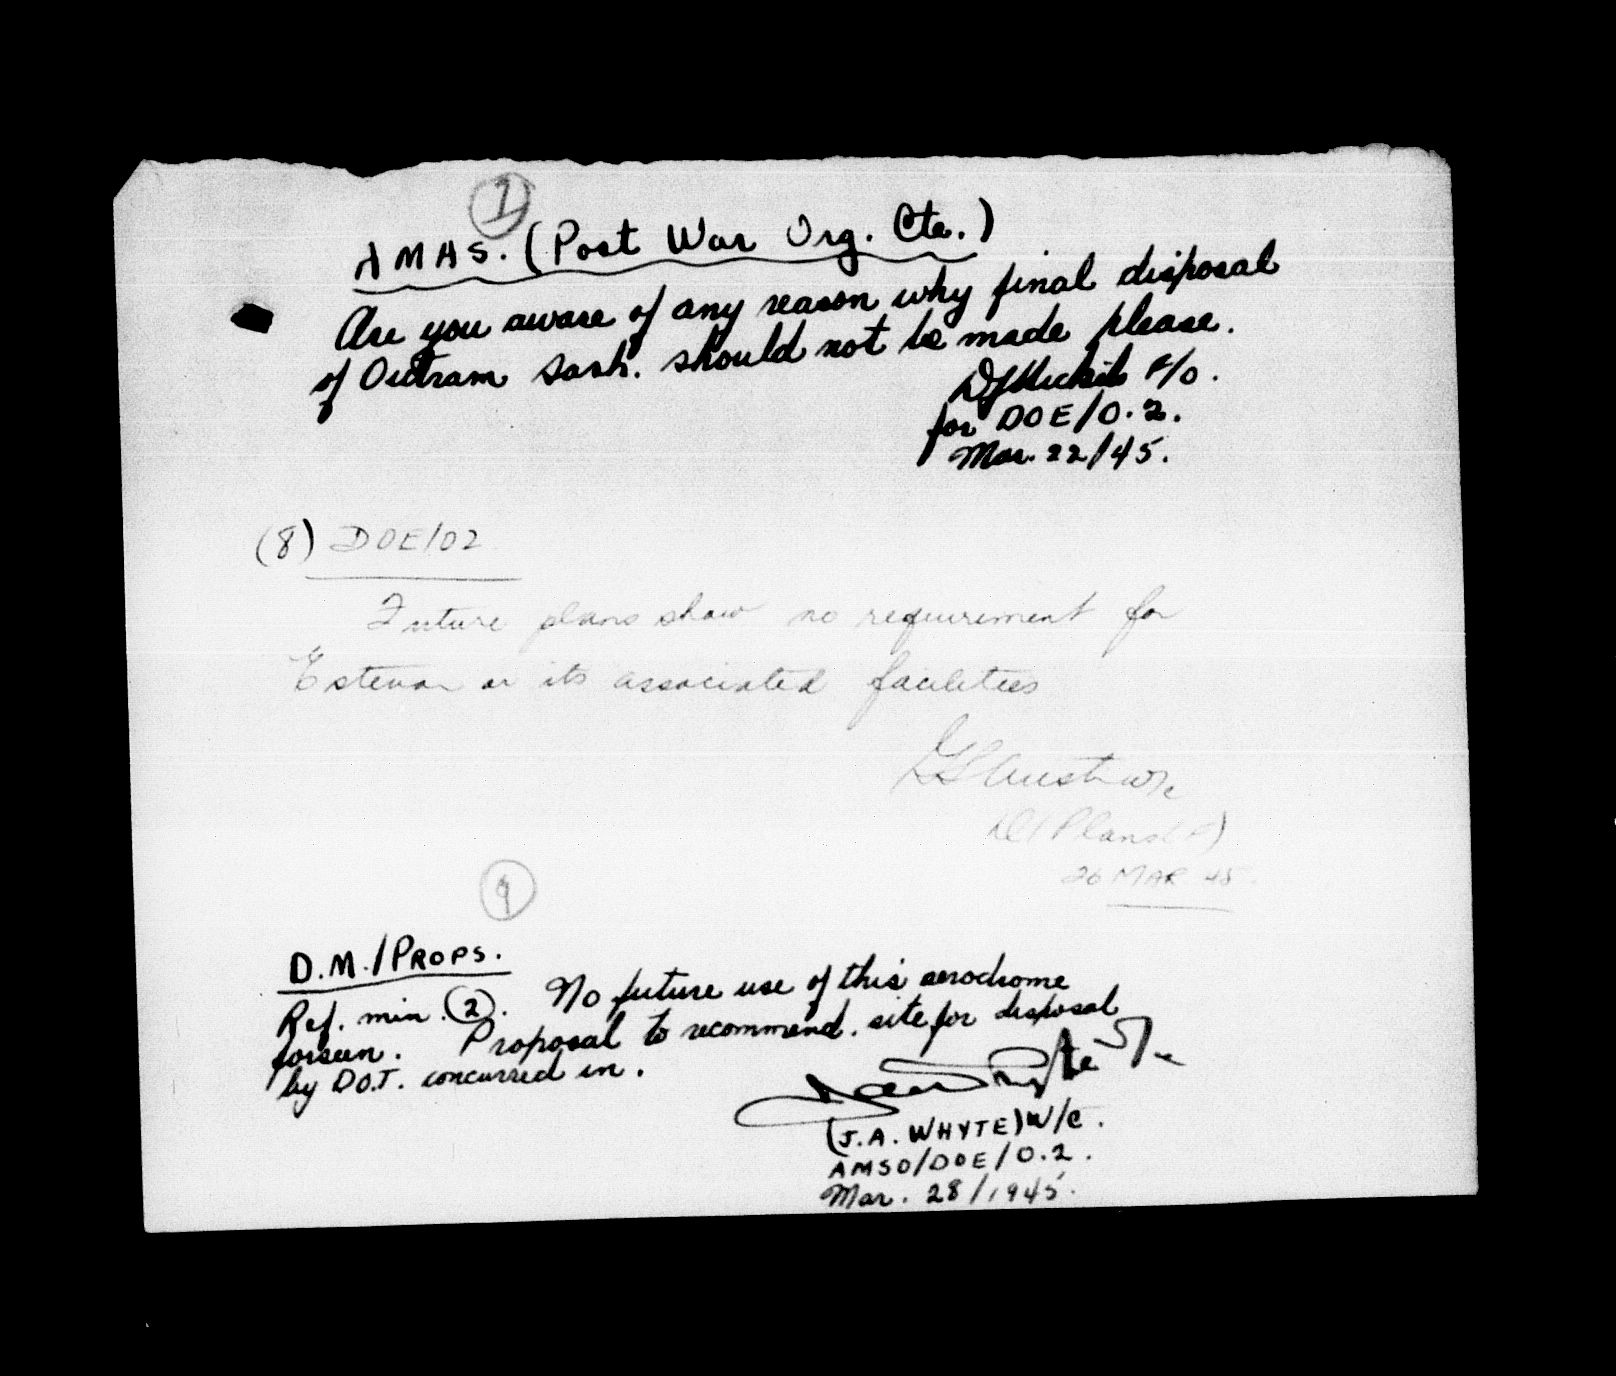 7
AMAS. (Post War Org. Cte.)
Are you aware of any reason why final disposal
of Outram Sask. should not be made please.
F/O.
for DOE/O.2.
Mar. 22/45.
(8) DOE/02
Future plans show no requirement for
Estevan or its associated facilities
W/C
D/Plans
26 MAR 45.
9
D.M./PROPS.
Ref. min. 2. No future use of this aerodrome
forseen. Proposal to recommend. site for disposal
by D.O.T. concurred in.
(J.A. WHYTE) W/C.
AMSO/DOE/O.2.
Mar. 28/1945.